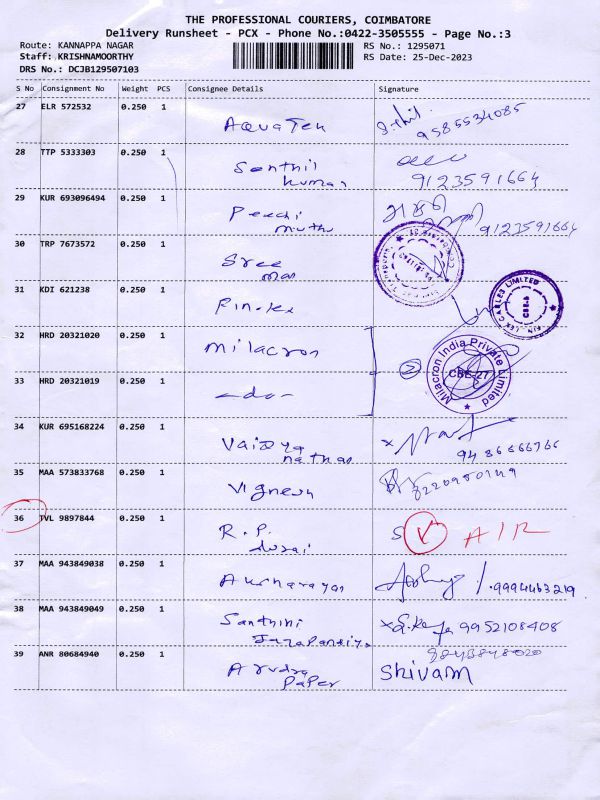 THE PROFESSIONAL COURIERS, COIMBATORE
Delivery Runsheet - PCX - Phone No.:0422-3505555 - Page No.:3
Route: KANNAPPA NAGAR
RS No.: 1295071
Staff: KRISHNAMOORTHY
RS Date: 25-Dec-2023
DRS No.: DCJB129507103
S No Consignment No Weight PCS Consignee Details Signature
27 ELR 572532 0.250 1
Aquaten
9585534085
28 TTP 5333303 0.250 1
Senthil
kumar
9123591664
29 KUR 693096494 0.250 1
Peechi
muthu
9123591664
30 TRP 7673572 0.250 1
Sree
mas
31 KDI 621238 0.250 1
FIN-TEX CABLES LIMITED
CBE-6
32 HRD 20321020 0.250 1
Milacron
2
Milacron India Private Limited
CBE-27
33 HRD 20321019 0.250 1
-do-
34 KUR 695168224 0.250 1
Vaidya
nathan
9486666766
35 MAA 573833768 0.250 1
Vignesh
8220980149
36 TVL 9897844 0.250 1
R. P.
durai
S AIR
37 MAA 943849038 0.250 1
9994463219
38 MAA 943849049 0.250 1
Santhini
9952108408
39 ANR 80684940 0.250 1
Arudra
Paper
9843848020
Shivam